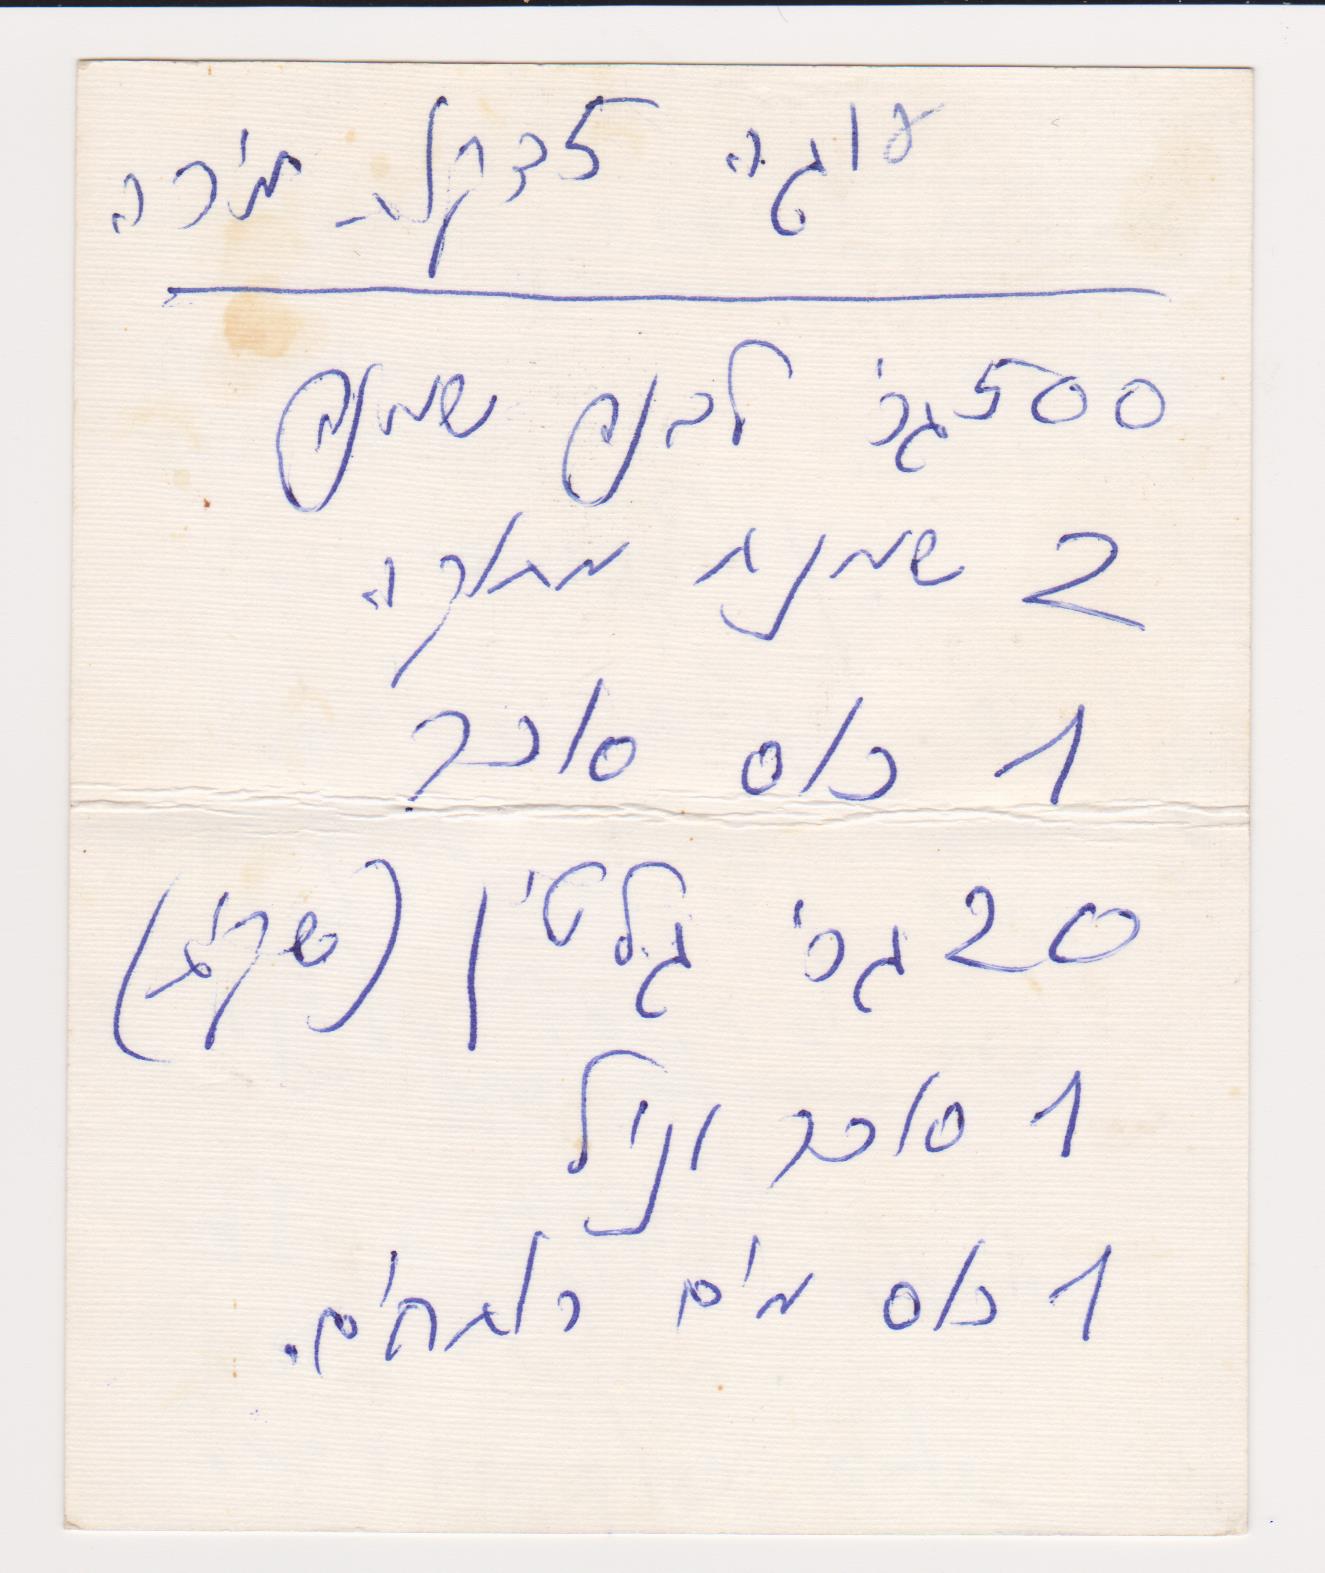 עוגה 5 דקות - מירה
500 גר' לבנה שמנה
2 שמנת מתוקה
1 כוס סוכר
20 גר' ג'לטין (שקית)
1 סוכר וניל
1 כוס מים רותחים.